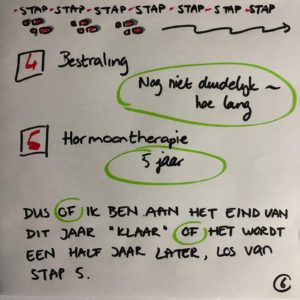 - STAP - STAP - STAP - STAP - STAP - STAP - STAP
4 Bestraling
Nog niet duidelijk ~
hoe lang
5 Hormoontherapie
5 jaar
DUS OF IK BEN AAN HET EIND VAN
DIT JAAR "KLAAR" OF HET WORDT
EEN HALF JAAR LATER, LOS van
STAP 5.
6